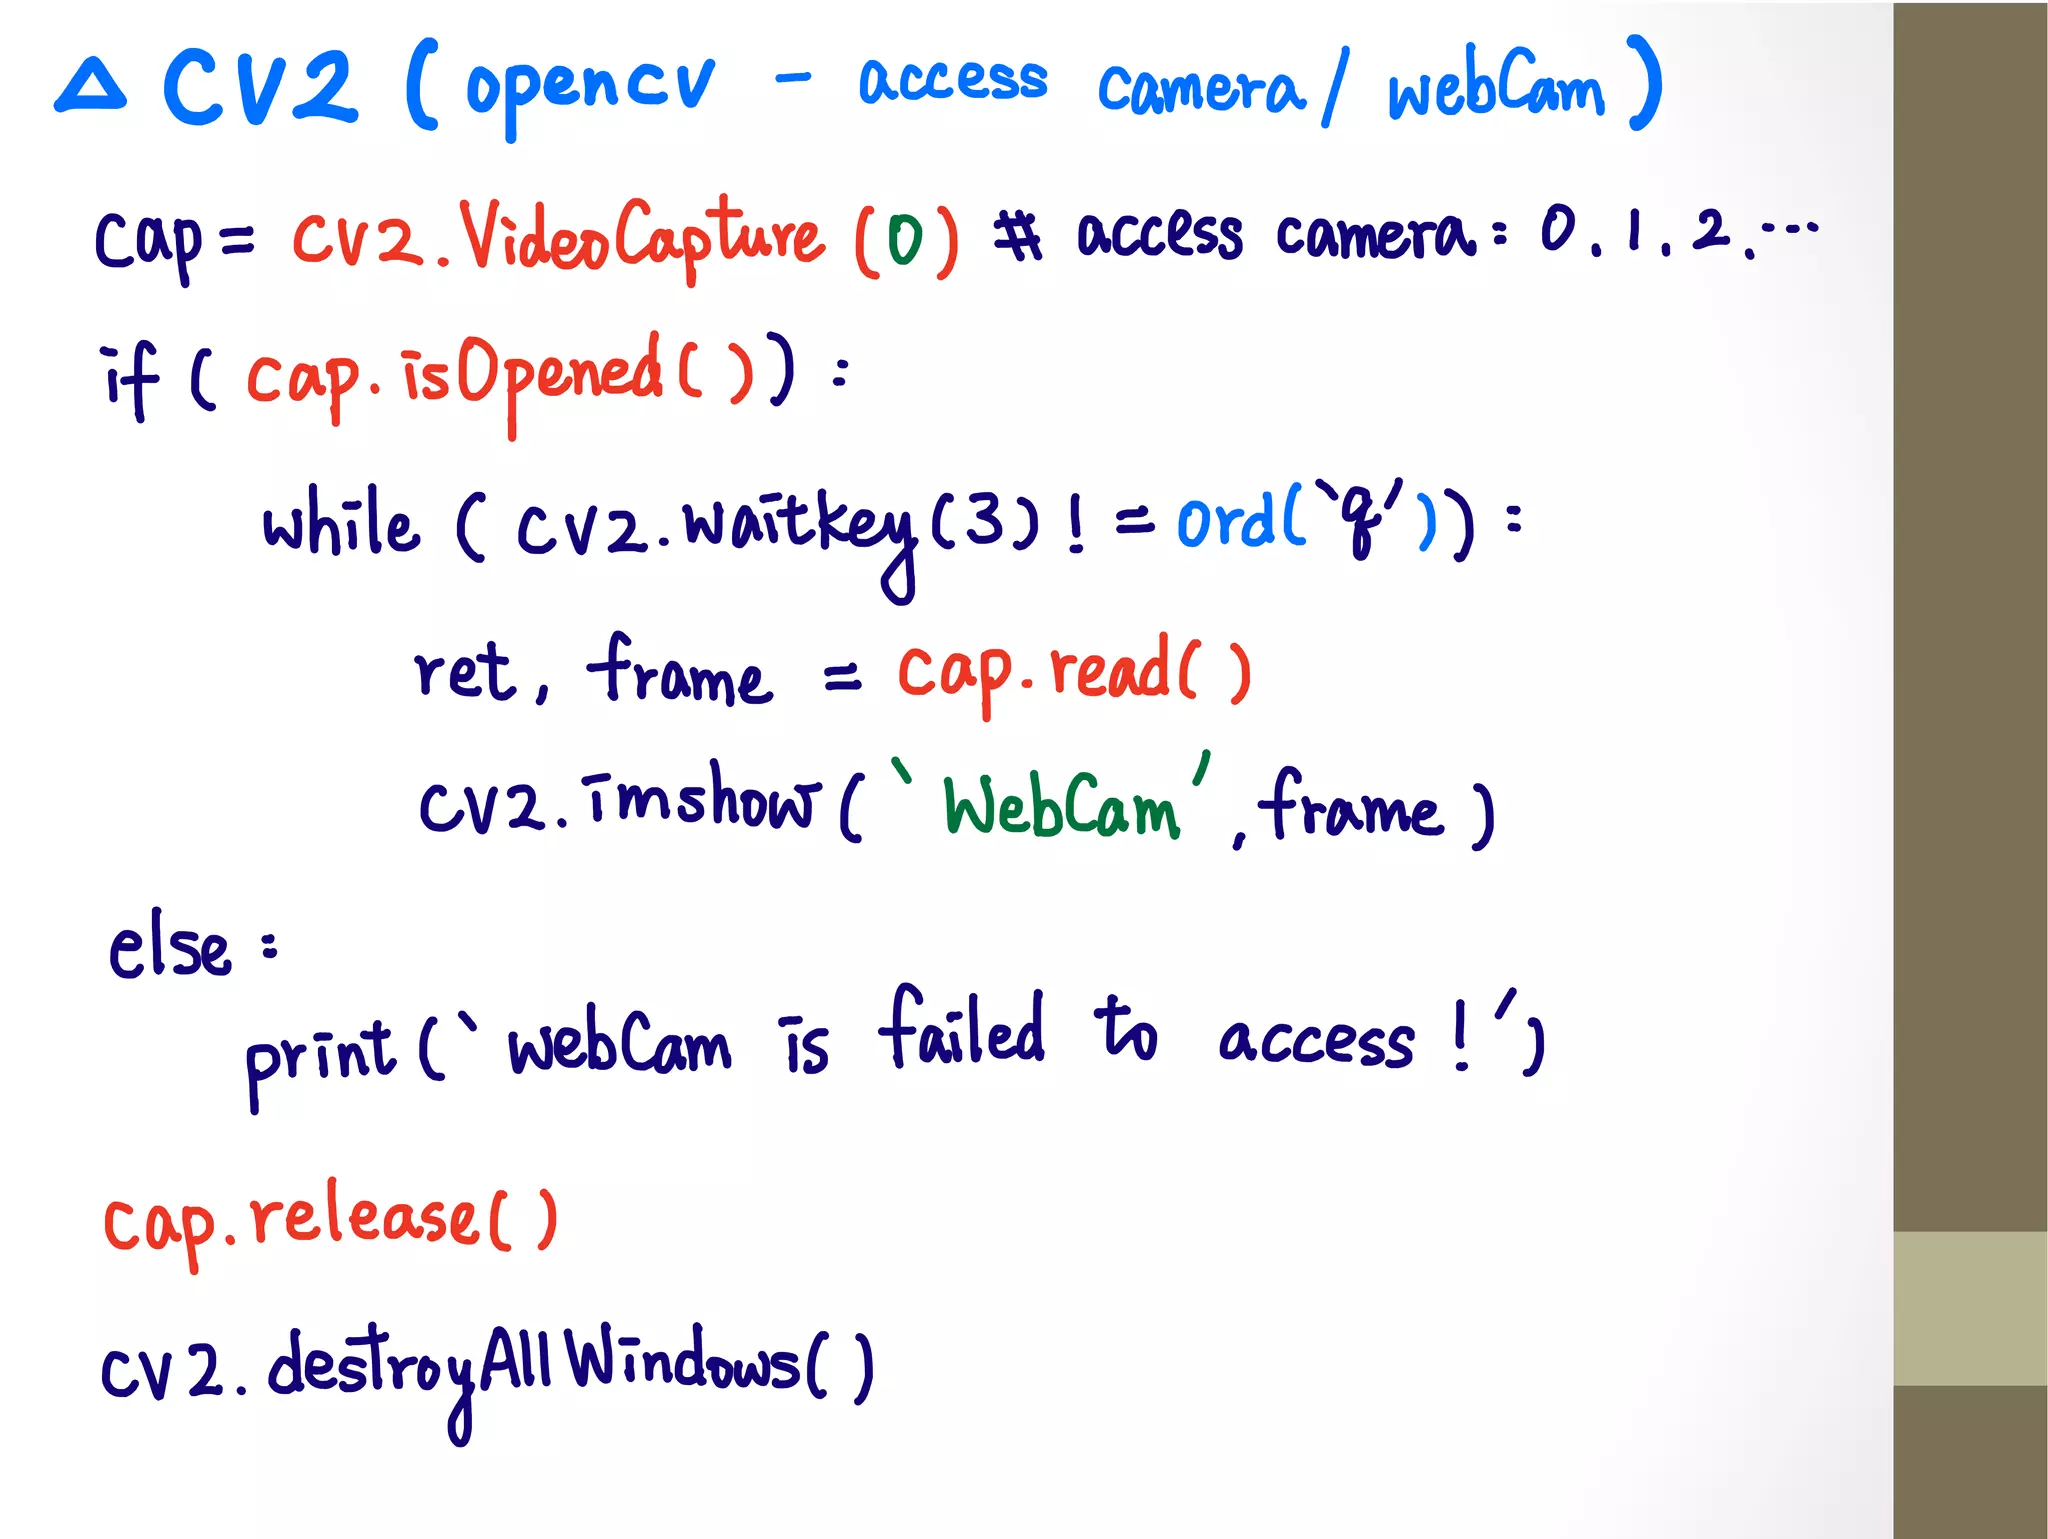 △ CV2 (opencv - access camera/ webCam)
cap = cv2.VideoCapture (0) # access camera: 0.1.2.…
if ( cap.isOpened( )) :
while ( cv2.waitkey(3) ! = ord(`q')) :
ret, frame = cap.read( )
cv2.imshow( `WebCam', frame )
else :
print (`webCam is failed to access !')
cap.release( )
cv2.destroyAllWindows( )